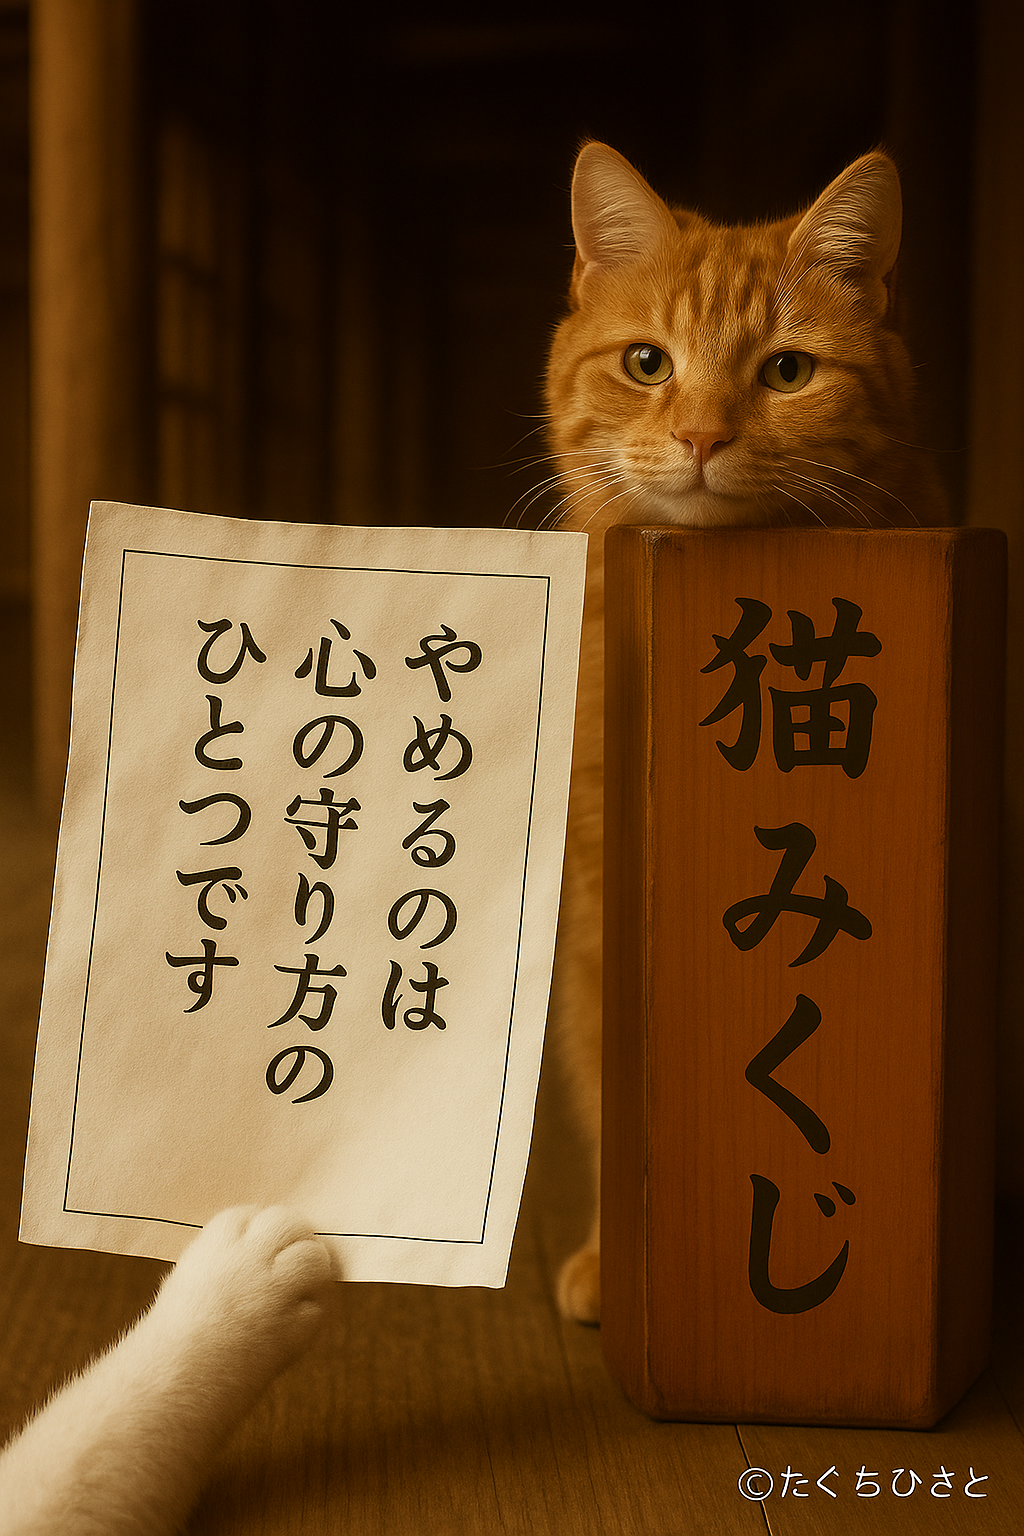 やめるのは
心の守り方の
ひとつです
猫みくじ
©たくちひさと